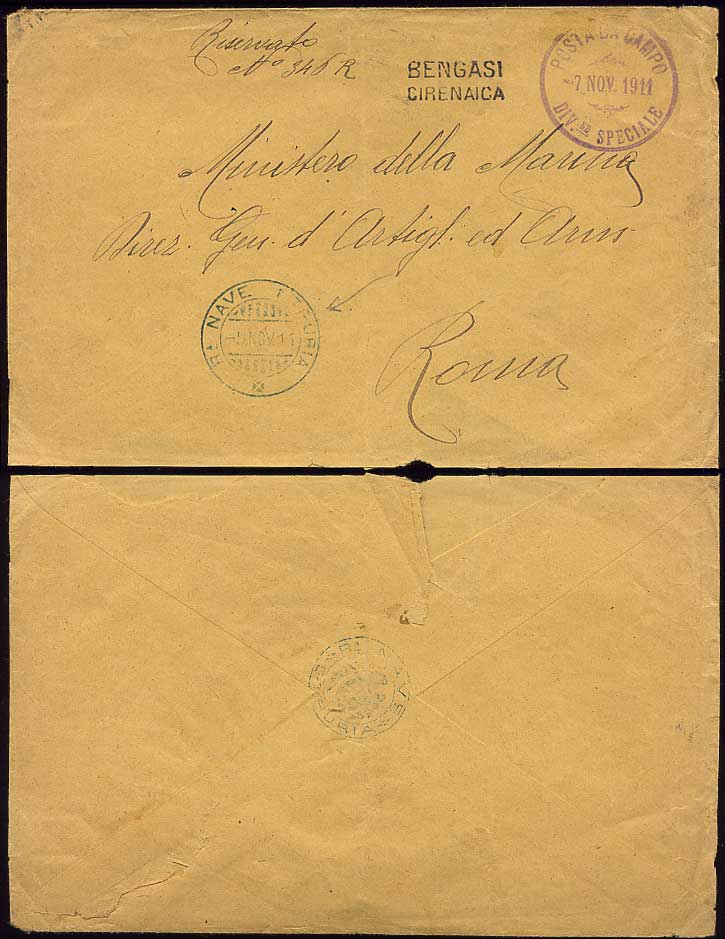 Riservato
No 346 R
BENGASI
CIRENAICA
POSTA DA CAMPO
-7 NOV. 1911
DIV.NE SPECIALE
Ministero della Marina
Direz. Gen. d'Artigl. ed Arm.
Ra NAVE
-5 NOV. 11
Roma